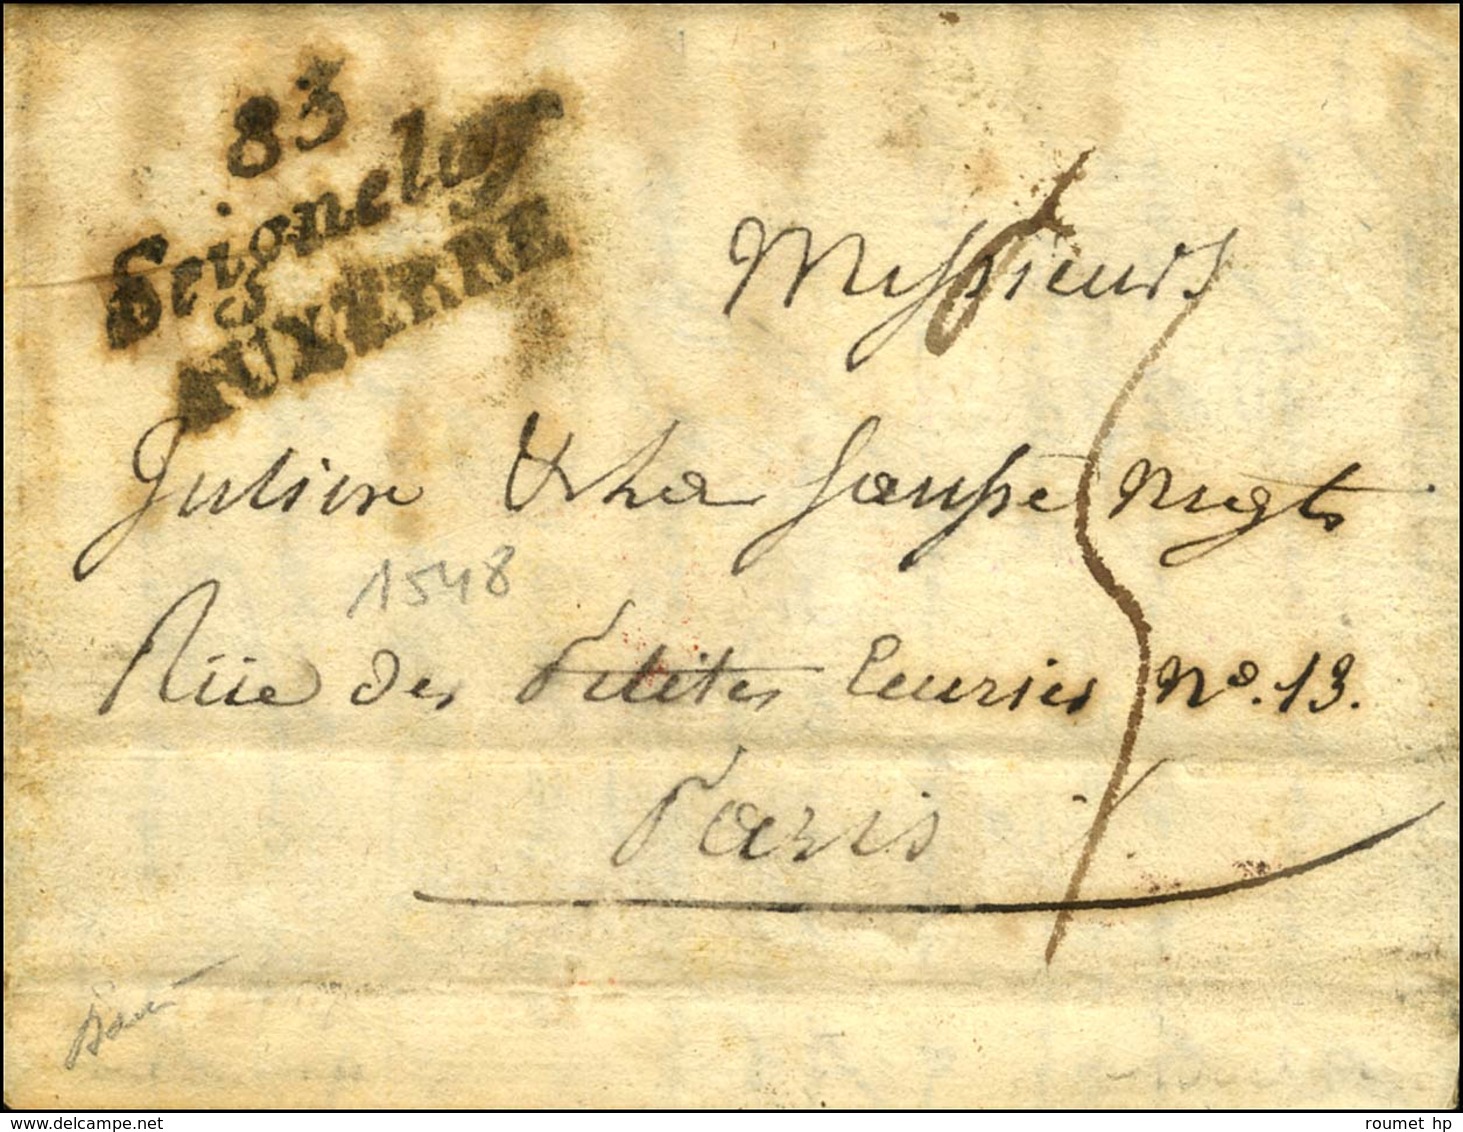 83
Seignelay
AUXERRE
Messieurs
Julien & La Jausse Negts
1548
Rüe des Petites Ecuries No. 13.
Paris
delcampe.net
roumet hp